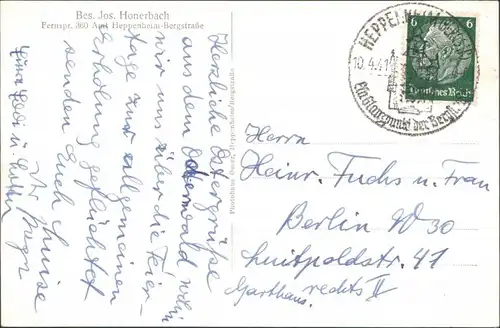 Bes. Jos. Honerbach
Fernspr. 360 Amt Heppenheim-Bergstraße
Herzliche Ostergrüße
aus dem Odenwald wohin
wir uns über die Feier-
tage zur allgemeinen
Erholung geflüchtet
senden Euch
Ihr
Photohaus Heppenheim/Bergstraße
HEPPENHEIM
10.4.41
Ein Glanzpunkt der Bergstr.
6 6
Deutsches Reich
Herrn
Heinr. Fuchs u. Frau
Berlin W 30
Luitpoldstr. 41
Garthaus. rechts II